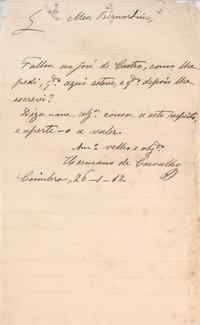 Meu Bernardino,
Fallou ao José de Castro, como lhe
pedi, qdo aqui esteve, e qdo depois lhe
escrevi?
Diga-me alga cousa a este respeito,
e aperte-o a valer.
Amo velho e obgo
Hermano de Carvalho
Coimbra, 26-1-12